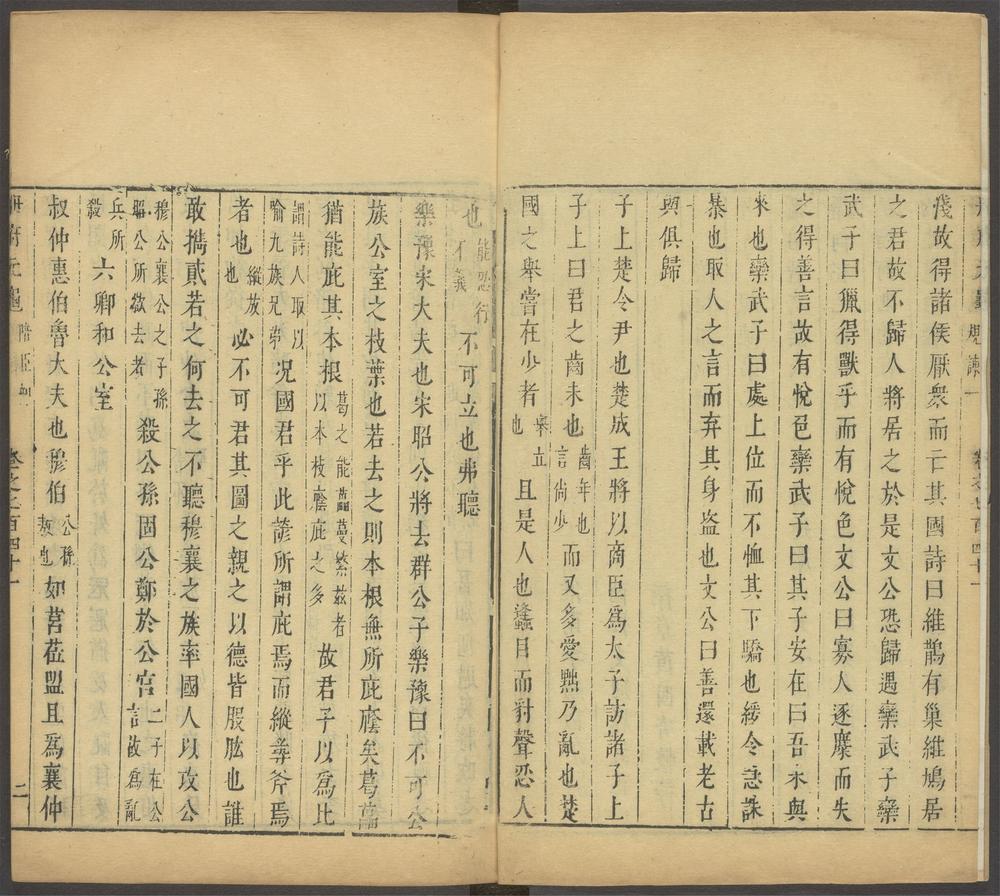 淺故得諸侯厭衆而亡其國詩曰維鵲有巢維鳩居
之君故不歸人將居之於是文公恐歸遇欒武子欒
武子曰獵得獸乎而有悅色文公曰寡人逐麋而失
之得善言故有悅色欒武子曰其子安在曰吾未與
來也欒武子曰處上位而不恤其下驕也緩令急誅
暴也取人之言而弃其身盜也文公曰善還載老古
與俱歸
子上楚令尹也楚成王將以商臣爲太子訪諸子上
子上曰君之齒未也齒年也言尚少而又多愛黜乃亂也楚
國之舉嘗在少者舉立也且是人也蠭目而豺聲忍人
也能忍行不義不可立也弗聽
樂豫宋大夫也宋昭公將去群公子樂豫曰不可公
族公室之枝葉也若去之則本根無所庇廕矣葛藟
猶能庇其本根葛之能藟蔓縈茲者以本枝廕庇之多故君子以爲比
謂詩人取以喻九族兄弟況國君乎此諺所謂庇焉而縱尋斧焉
者也縱放也必不可君其圖之親之以德皆股肱也誰
敢攜貳若之何去之不聽穆襄之族率國人以攻公
穆公襄公之子孫昭公所欲去者殺公孫固公鄭於公宮二子在公言故爲亂
兵所殺六卿和公室
叔仲惠伯魯大夫也穆伯公孫敖也如莒莅盟且爲襄仲
冊府元龜 陪臣 卷之七百四十一 二